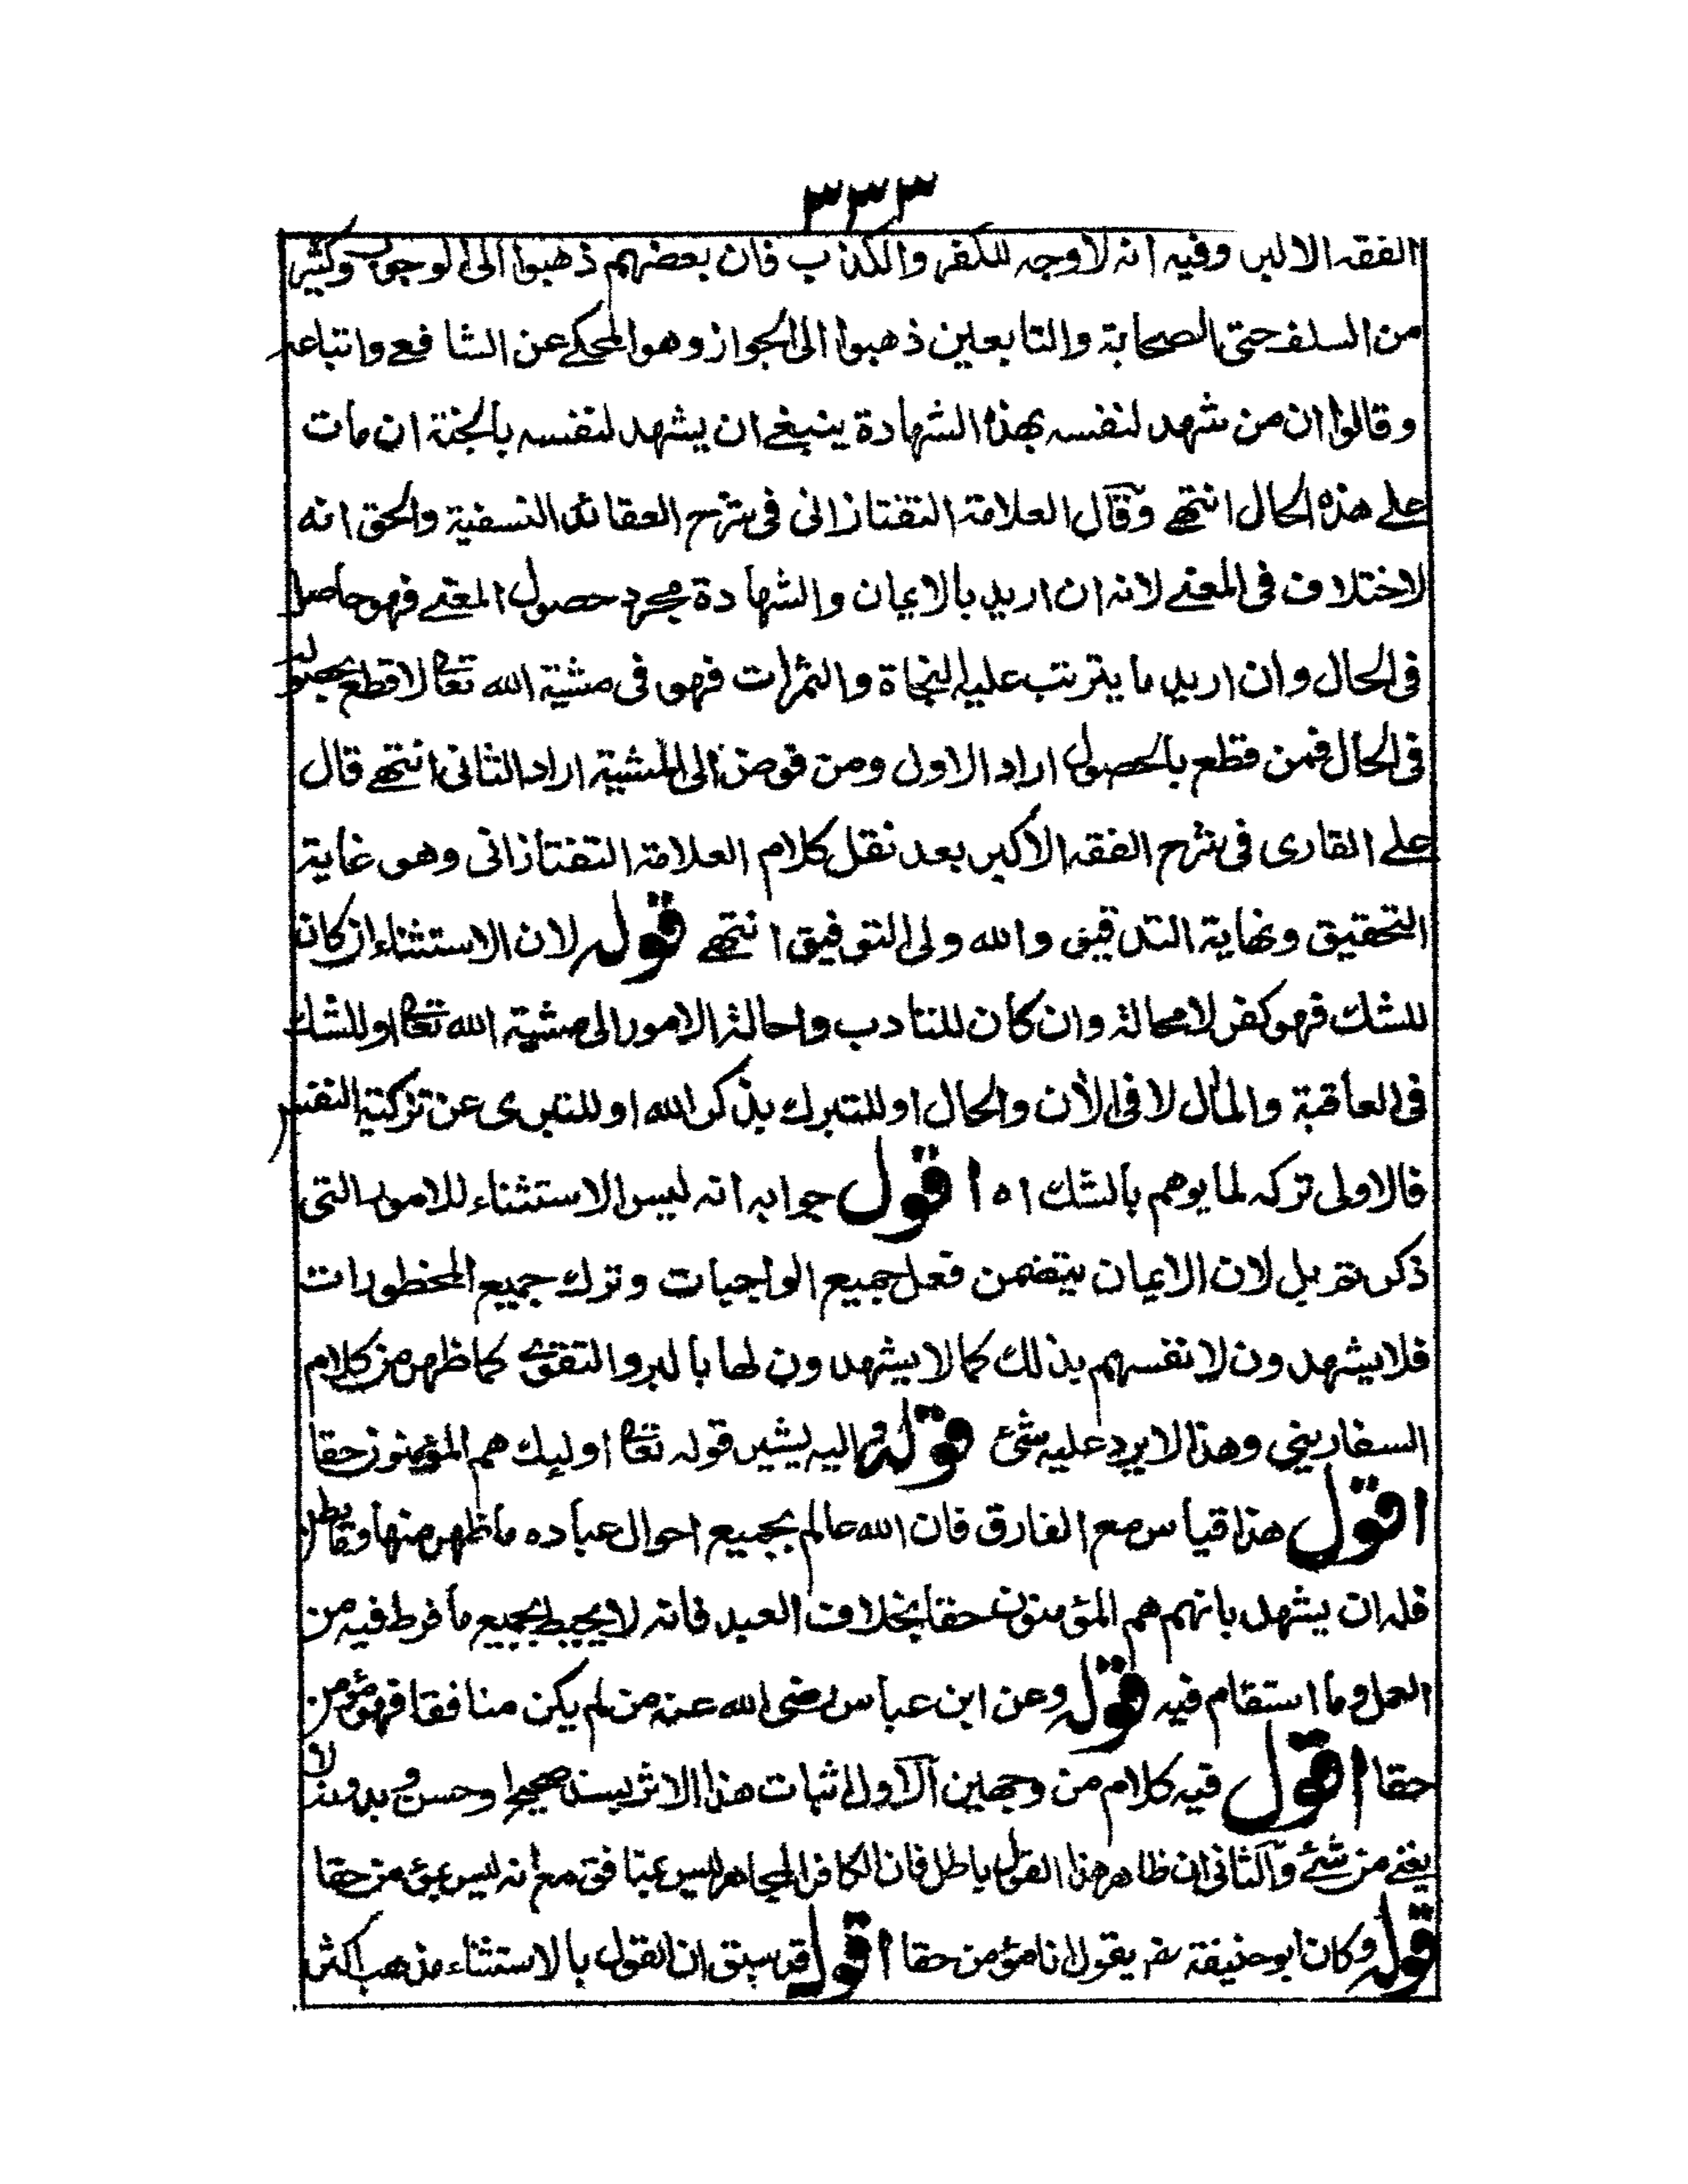 ٣٣٣
الفقه الاكبر وفيه انه لاوجه للكفر والكذب فان بعضهم ذهبوا الى الوجوب وكثير
من السلف حتى الصحابة والتابعين ذهبوا الى الجواز وهو المحكے عن الشافعے واتباعه
وقالوا ان من شهد لنفسه بهذه الشهادة ينبغے ان يشهد لنفسه بالجنة ان مات
علے هذه الحال انتهے وقال العلامة التفتازانى فى شرح العقائد النسفية والحق انه
لاختلاف فى المعنے لانه ان اريد بالايمان والشهادة مجرد حصول المعنے فهو حاصل
فى الحال وان اريد ما يترتب عليه النجاة والثمرات فهو فى مشية الله تعا لاقطع بحصوله
فى الحال فمن قطع بالحصول اراد الاول ومن فوض الى المشية اراد الثانى انتهے قال
علے القارى فى شرح الفقه الاكبر بعد نقل كلام العلامة التفتازانى وهو غاية
التحقيق ونهاية التدقيق والله ولى التوفيق انتهے قوله لان الاستثناء ان كان
للشك فهو كفر لامحالة وان كان للتادب واحالة الامور الى مشية الله تعا او للشك
فى العاقبة والمال لا فى الأن والحال او للتبرك بذكر الله او للتبرى عن تزكية النفس
فالاولى تركه لما يوهم بالشك اه اقول جوابه انه ليس الاستثناء للامور التى
ذكرتقر بل لان الايمان يتضمن فعل جميع الواجبات وترك جميع المحظورات
فلا يشهدون لانفسهم بذلك كما لا يشهدون لها بالبر والتقوے كما ظهر من كلام
السفاريني وهذا لايرد عليه شئ قوله واليه يشير قوله تعا اوليك هم المؤمنون حقا
اقول هذا قياس مع الفارق فان الله عالم بجميع احوال عباده ما ظهر منها وما بطن
فله ان يشهد بانهم هم المؤمنون حقا بخلاف العبد فانه لا يحيط بجميع ما فرط فيه من
العمل وما استقام فيه قوله وعن ابن عباس رضى الله عنه من لم يكن منافقا فهو مؤمن
حقا اقول فيه كلام من وجهين الاول اثبات هذا الاثر بسند صحيح او حسن و بدونه لا
يغنے من شئے والثانى ان ظاهر هذا القول باطل فان الكافر المجاهر ليس بمنافق مع انه ليس بمؤمن حقا
قوله وكان ابوحنيفة يقول انا مؤمن حقا اقول قد سبق ان القول بالاستثناء مذهب اكثر